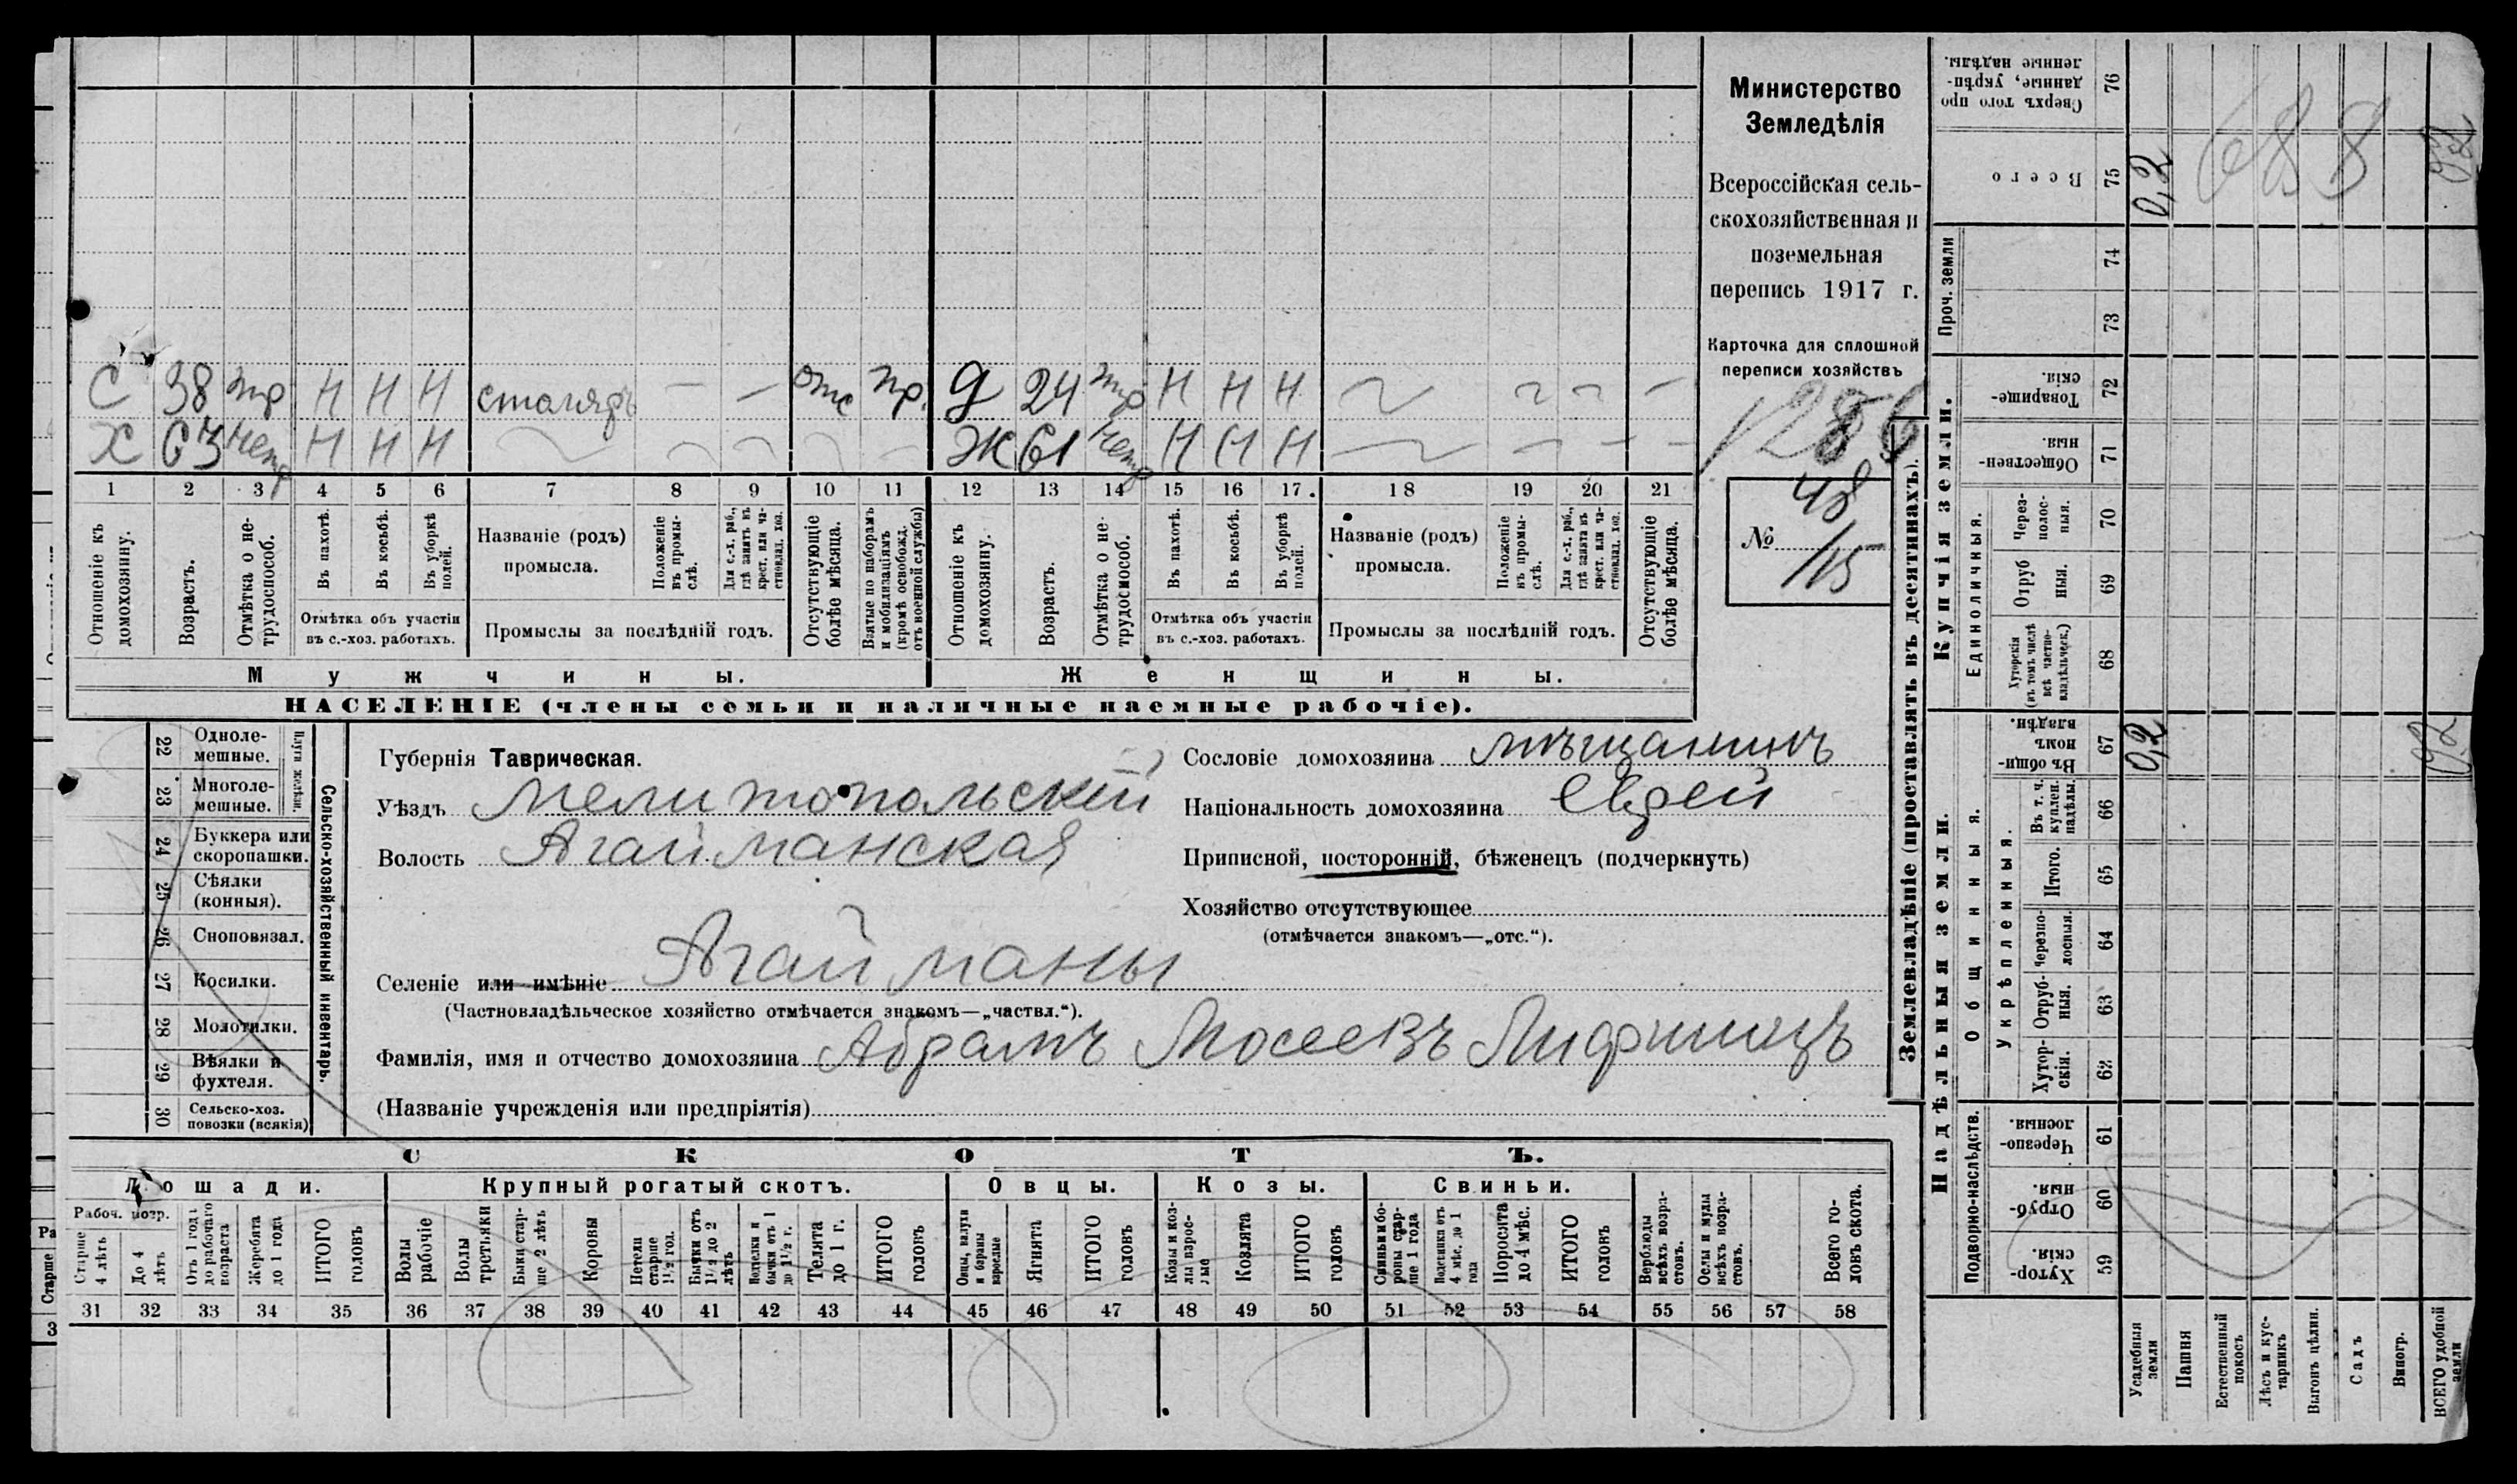 С 38 тр Н Н Н столяръ — — отс пр. д 24 тр Н Н Н
Х 63 нетр Н Н Н Ж 61 нетр Н Н Н
1 2 3 4 5 6 7 8 9 10 11 12 13 14 15 16 17 18 19 20 21
Отношеніе къ домохозяину.
Возрастъ.
Отмѣтка о нетрудоспособ.
Въ пахотѣ.
Въ косьбѣ.
Въ уборкѣ полей.
Отмѣтка объ участіи
въ с.-хоз. работахъ.
Названіе (родъ)
промысла.
Положеніе въ промыслѣ.
Для с.-х. раб., гдѣ занятъ въ крест. или частновлад. хоз.
Промыслы за послѣдній годъ.
Отсутствующіе болѣе мѣсяца.
Взятые по наборамъ и мобилизаціямъ (кромѣ освобожд. отъ военной службы)
Отношеніе къ домохозяину.
Возрастъ.
Отмѣтка о нетрудоспособ.
Въ пахотѣ.
Въ косьбѣ.
Въ уборкѣ полей.
Отмѣтка объ участіи
въ с.-хоз. работахъ.
Названіе (родъ)
промысла.
Положеніе въ промыслѣ.
Для с.-х. раб., гдѣ занята въ крест. или частновлад. хоз.
Промыслы за послѣдній годъ.
Отсутствующіе болѣе мѣсяца.
Мужчины.
Женщины.
НАСЕЛЕНІЕ (члены семьи и наличные наемные рабочіе).
Министерство
Земледѣлія
Всероссійская сель-
скохозяйственная и
поземельная
перепись 1917 г.
Карточка для сплошной
переписи хозяйствъ
1286
48
№ 115
22 Одноле-
мешные.
23 Многоле-
мешные.
Плуги желѣзн.
24 Буккера или
скоропашки.
25 Сѣялки
(конныя).
26 Сноповязал.
27 Косилки.
28 Молотилки.
29 Вѣялки и
фухтеля.
30 Сельско-хоз.
повозки (всякія)
Сельско-хозяйственный инвентарь.
Губернія Таврическая.
Уѣздъ Мелитопольскій
Волость Агайманская
Селеніе или имѣніе Агайманы
(Частновладѣльческое хозяйство отмѣчается знакомъ—„частвл.“).
Фамилія, имя и отчество домохозяина Абрамъ Мосеевъ Лифшицъ
(Названіе учрежденія или предпріятія)
Сословіе домохозяина мѣщанинъ
Національность домохозяина еврей
Приписной, посторонній, бѣженецъ (подчеркнуть)
Хозяйство отсутствующее
(отмѣчается знакомъ—„отс.“).
СКОТЪ.
Лошади.
Рабоч. возр.
Старше 4 лѣтъ
До 4 лѣтъ
Отъ 1 года до рабочаго возраста
Жеребята до 1 года
ИТОГО головъ
Крупный рогатый скотъ.
Волы рабочіе
Волы третьяки
Быки старше 2 лѣтъ
Коровы
Нетели старше 1½ год.
Бычки отъ 1½ до 2 лѣтъ
Нетелки и бычки отъ 1 до 1½ г.
Телята до 1 г.
ИТОГО головъ
Овцы.
Овцы, валухи и бараны взрослые
Ягнята
ИТОГО головъ
Козы.
Козы и козлы взрослые
Козлята
ИТОГО головъ
Свиньи.
Свиньи и боровы старше 1 года
Подсвинки отъ 4 мѣс. до 1 года
Поросята до 4 мѣс.
ИТОГО головъ
Верблюды всѣхъ возрастовъ.
Ослы и мулы всѣхъ возрастовъ.
Всего головъ скота.
31 32 33 34 35 36 37 38 39 40 41 42 43 44 45 46 47 48 49 50 51 52 53 54 55 56 57 58
Землевладѣніе (проставлять въ десятинахъ).
Сверхъ того проданные, укрѣпленные надѣлы. 76
Всего 75 0,2
688
0,2
Проч. земли
74
73
Купчія земли.
Товарищескія. 72
Общественныя. 71
Единоличныя.
Черезполосныя. 70
Отрубныя. 69
Хуторскія (въ томъ числѣ всѣ частновладѣльческ.) 68
Надѣльныя земли.
Общинныя.
Въ общинномъ владѣн. 67 0,2
0,2
Укрѣпленныя.
Въ т. ч. куплен. надѣлы. 66
Итого. 65
Черезполосныя. 64
Отрубныя. 63
Хуторскія. 62
Подворно-наслѣдств.
Черезполосныя. 61
Отрубныя. 60
Хуторскія. 59
Усадебныя земли
Пашня
Естественный покосъ
Лѣсъ и кустарникъ
Выгонъ цѣлин.
Садъ
Виногр.
ВСЕГО удобной земли
Ра
Старше
3